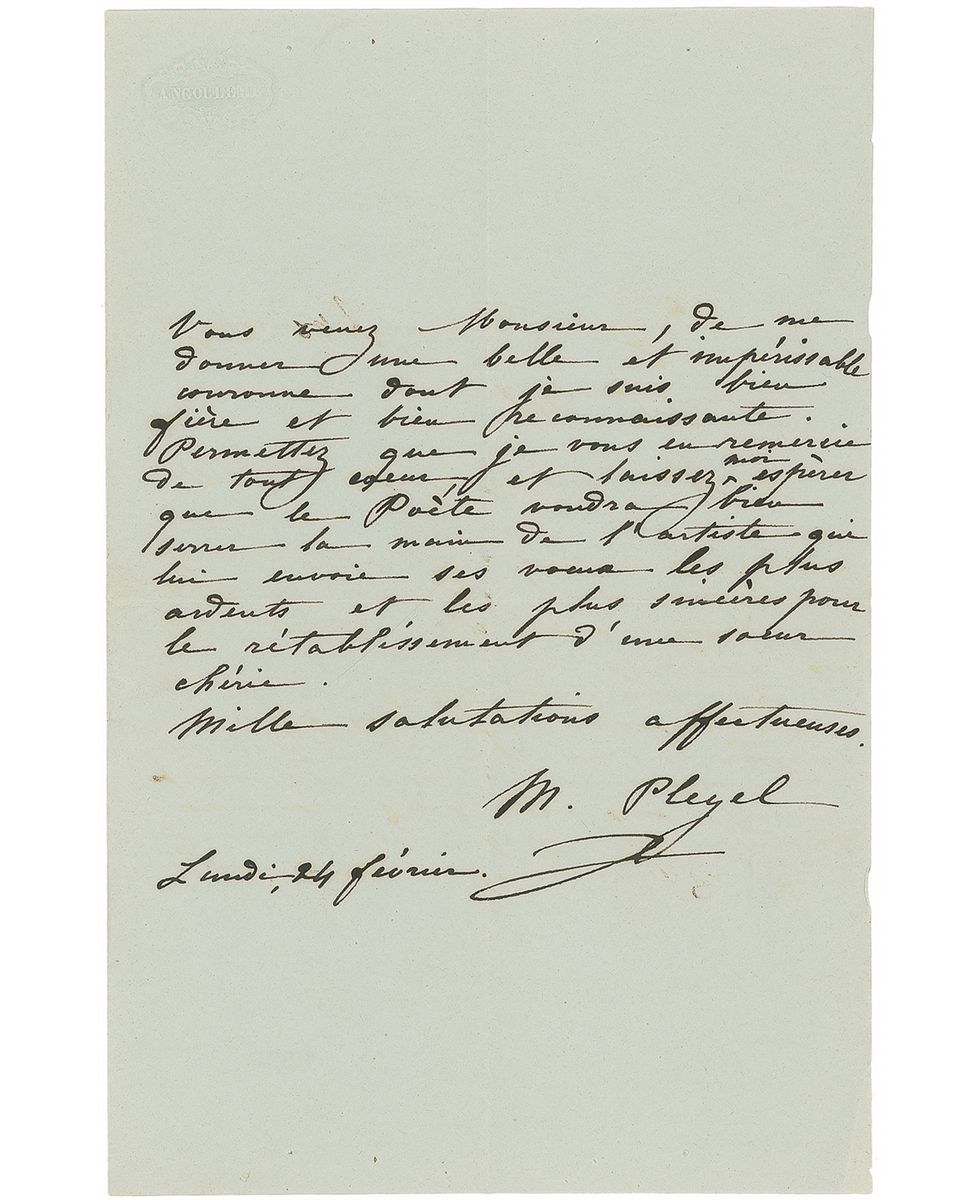 ANGOULEME
Vous venez Monsieur, de me
donner une belle et impérissable
couronne dont je suis bien
fière et bien reconnaissante.
Permettez que je vous en remercie
de tout coeur, et laissez moi espérer
que le Poète voudra bien
serrer la main de l'artiste qui
lui envoie ses voeux les plus
ardents et les plus sincères pour
le rétablissement d'une soeur
chérie.
Mille salutations affectueuses.
M. Pleyel
Lundi, 24 février.